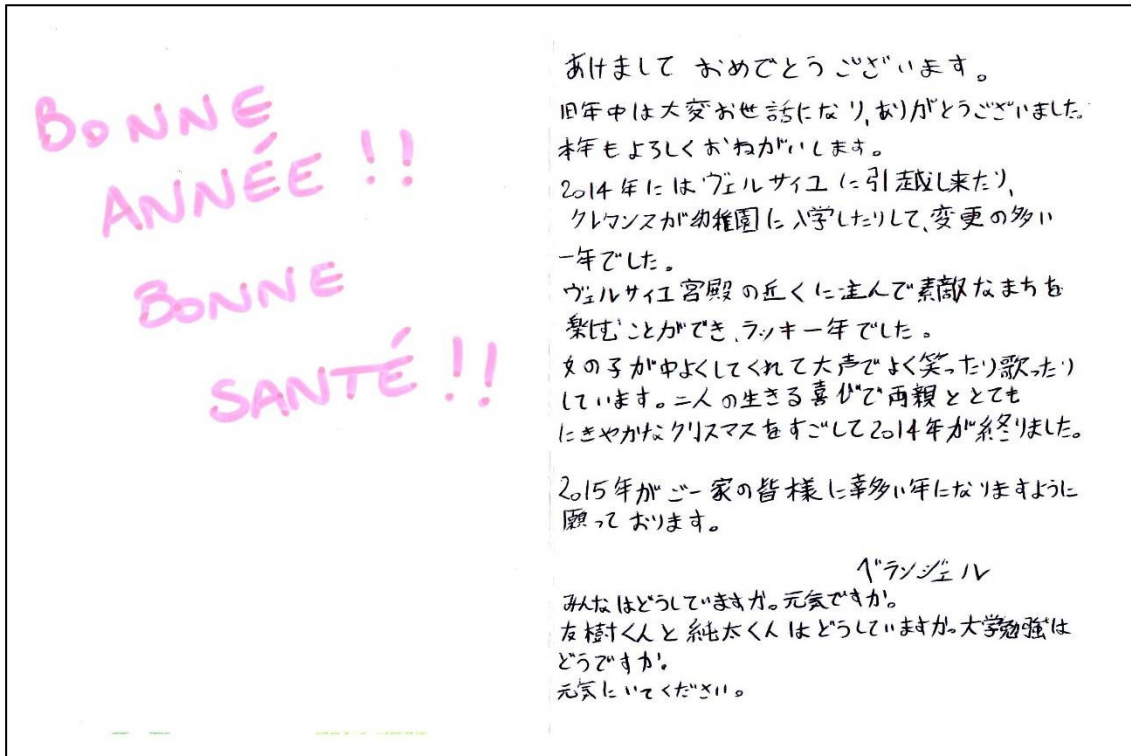 BONNE
ANNÉE !!
BONNE
SANTÉ !!
あけまして おめでとうございます。
旧年中は大変お世話になり、ありがとうございました。
本年もよろしくおねがいします。
2014年にはヴェルサイユに引越し来たり、
クレマンスが幼稚園に入学したりして、変更の多い
一年でした。
ヴェルサイユ宮殿の近くに注んで素敵なまちを
楽しむことができ、ラッキー年でした。
女の子が中よくしてくれて大声でよく笑ったり歌ったり
しています。二人の生きる喜びで両親ととても
にきやかなクリスマスをすごして2014年が終りました。
2015年がご一家の皆様に幸多い年になりますように
願っております。
ベランジェル
みんなはどうしていますか。元気ですか。
友樹くんと純太くんはどうしていますか。大学勉強は
どうですか。
元気にいてください。